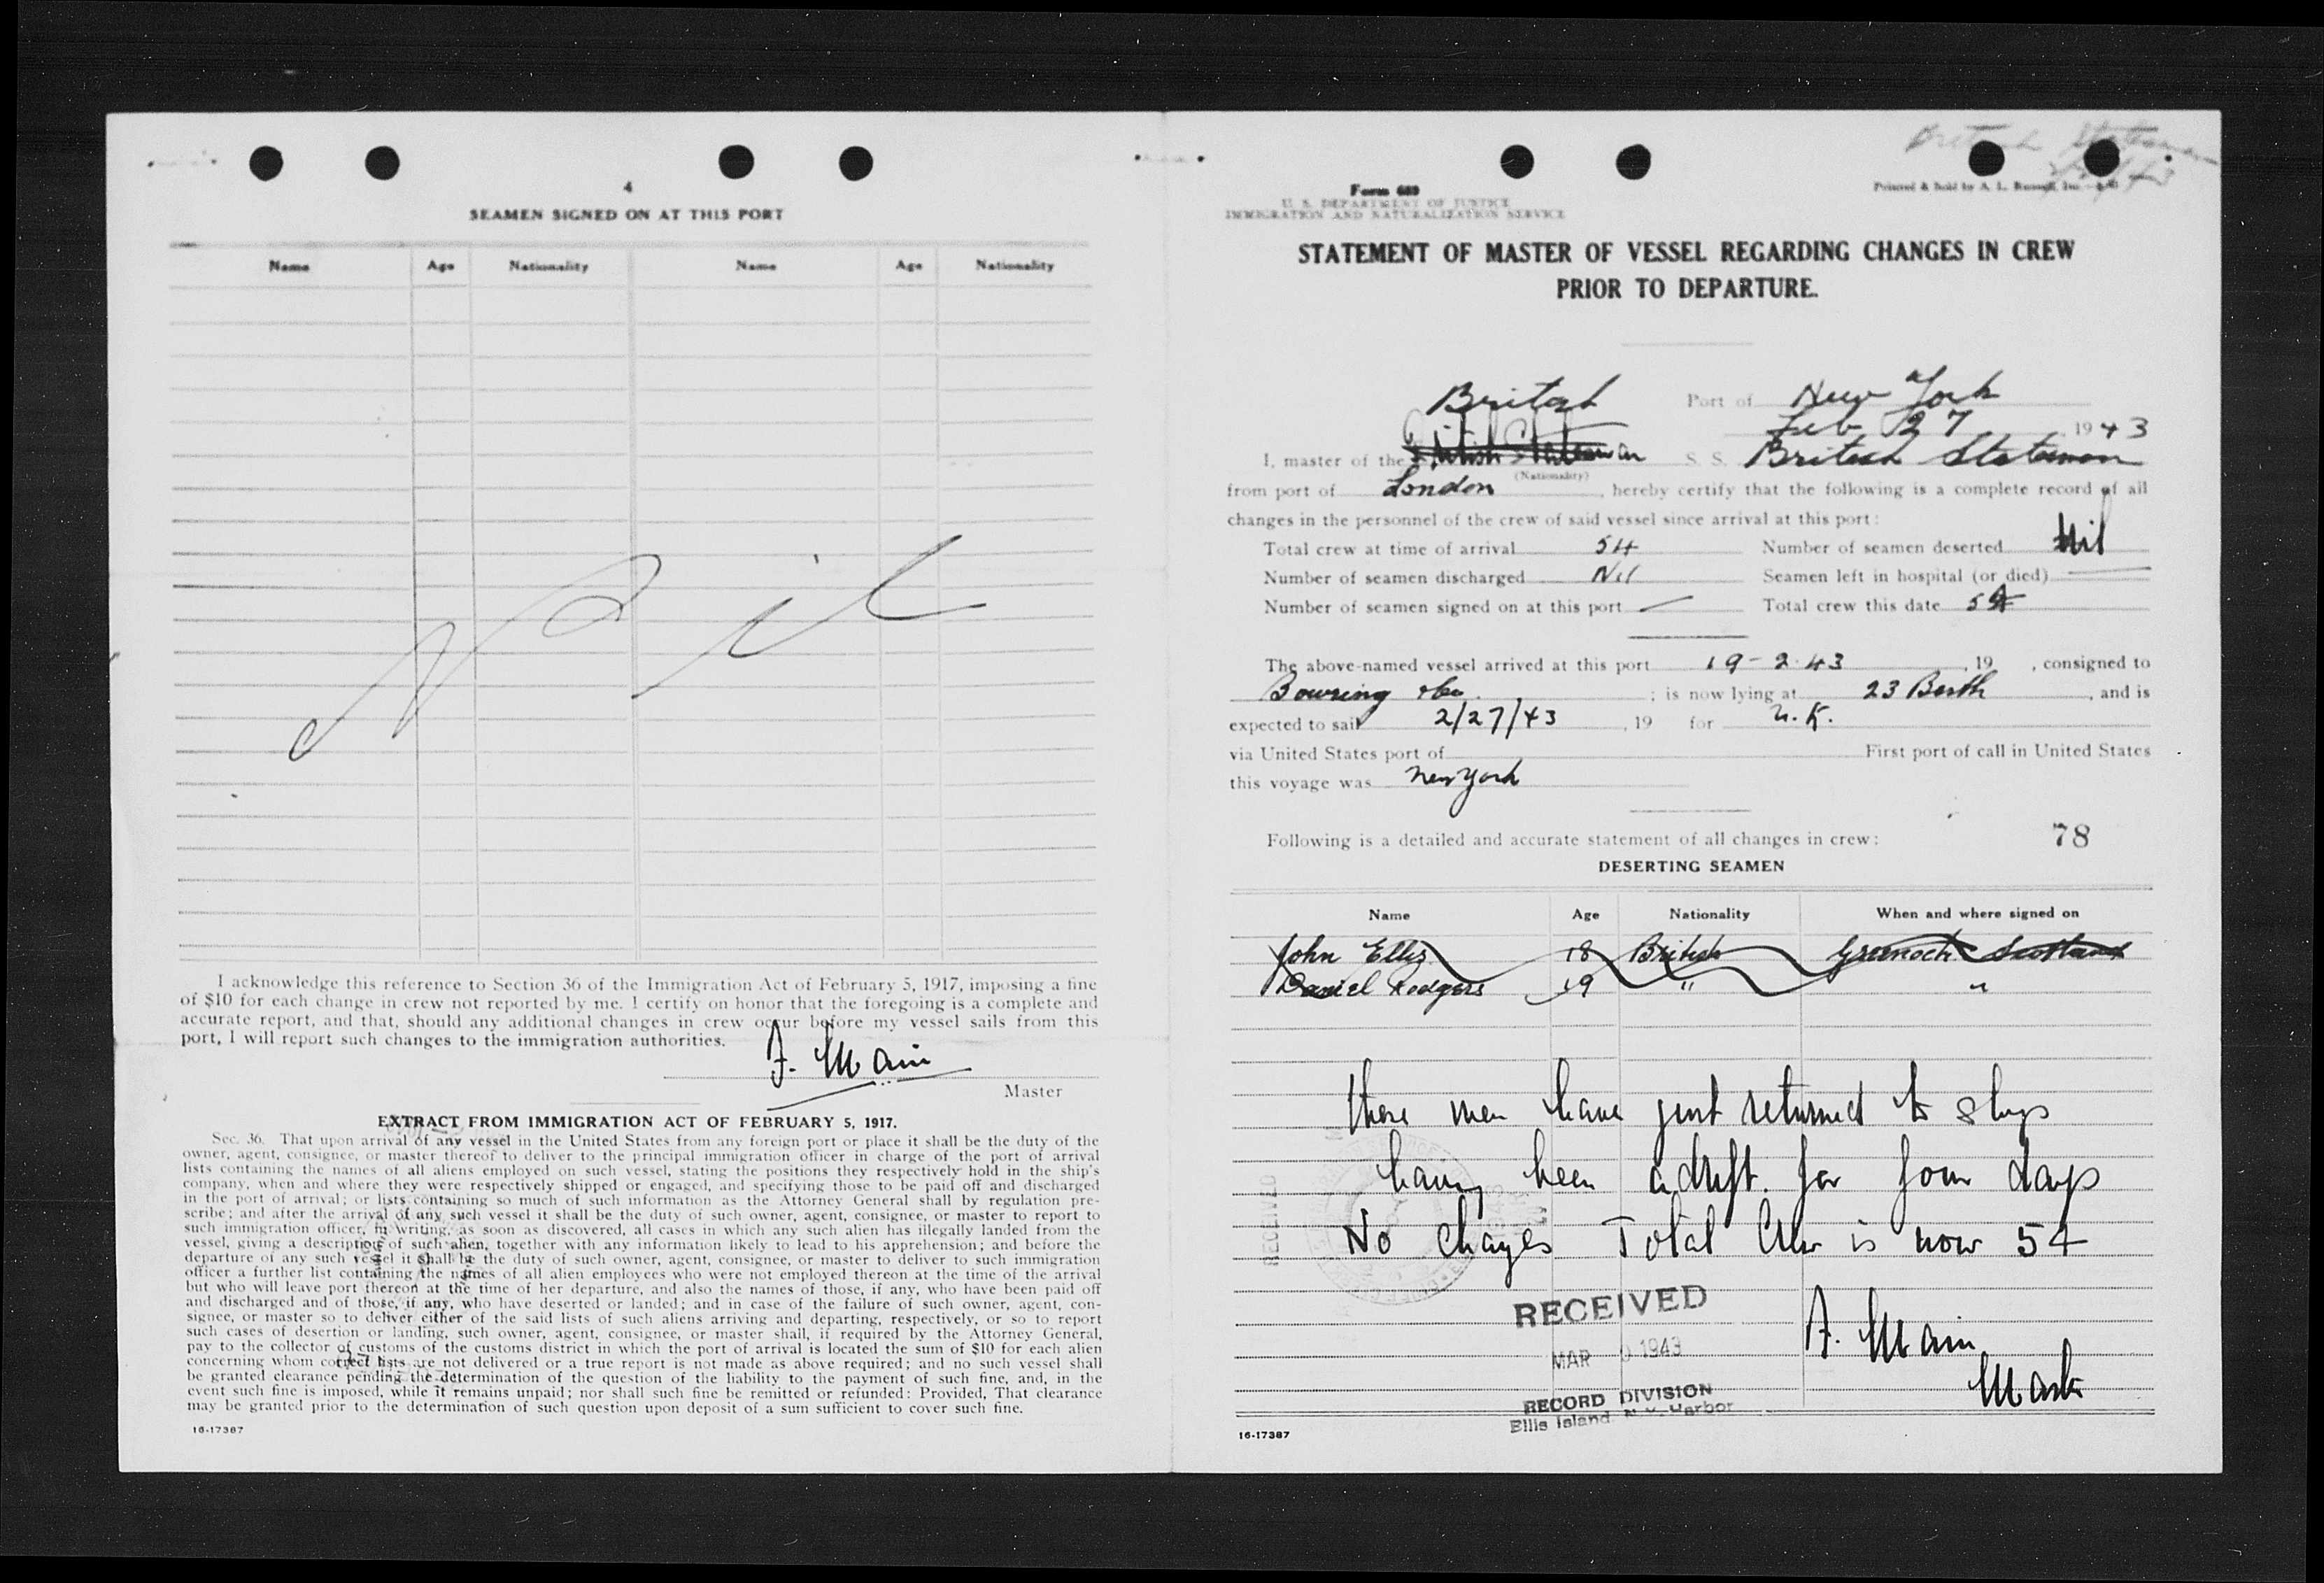 4
SEAMEN SIGNED ON AT THIS PORT
Name Age Nationality Name Age Nationality
Nil
I acknowledge this reference to Section 36 of the Immigration Act of February 5, 1917, imposing a fine
of $10 for each change in crew not reported by me. I certify on honor that the foregoing is a complete and
accurate report, and that, should any additional changes in crew occur before my vessel sails from this
port, I will report such changes to the immigration authorities.
F. Main
Master
EXTRACT FROM IMMIGRATION ACT OF FEBRUARY 5, 1917.
Sec. 36. That upon arrival of any vessel in the United States from any foreign port or place it shall be the duty of the
owner, agent, consignee, or master thereof to deliver to the principal immigration officer in charge of the port of arrival
lists containing the names of all aliens employed on such vessel, stating the positions they respectively hold in the ship's
company, when and where they were respectively shipped or engaged, and specifying those to be paid off and discharged
in the port of arrival; or lists containing so much of such information as the Attorney General shall by regulation pre-
scribe; and after the arrival of any such vessel it shall be the duty of such owner, agent, consignee, or master to report to
such immigration officer, in writing, as soon as discovered, all cases in which any such alien has illegally landed from the
vessel, giving a description of such alien, together with any information likely to lead to his apprehension; and before the
departure of any such vessel it shall be the duty of such owner, agent, consignee, or master to deliver to such immigration
officer a further list containing the names of all alien employees who were not employed thereon at the time of the arrival
but who will leave port thereon at the time of her departure, and also the names of those, if any, who have been paid off
and discharged and of those, if any, who have deserted or landed; and in case of the failure of such owner, agent, con-
signee, or master so to deliver either of the said lists of such aliens arriving and departing, respectively, or so to report
such cases of desertion or landing, such owner, agent, consignee, or master shall, if required by the Attorney General,
pay to the collector of customs of the customs district in which the port of arrival is located the sum of $10 for each alien
concerning whom correct lists are not delivered or a true report is not made as above required; and no such vessel shall
be granted clearance pending the determination of the question of the liability to the payment of such fine, and, in the
event such fine is imposed, while it remains unpaid; nor shall such fine be remitted or refunded: Provided, That clearance
may be granted prior to the determination of such question upon deposit of a sum sufficient to cover such fine.
16-17387
British Statesman
Form 689
U. S. DEPARTMENT OF JUSTICE
IMMIGRATION AND NATURALIZATION SERVICE
Printed & Sold by A. L. Inc.
STATEMENT OF MASTER OF VESSEL REGARDING CHANGES IN CREW
PRIOR TO DEPARTURE.
British Port of New York
Feb 27 1943
I, master of the British Statesman S. S. British Statesman
(Nationality)
from port of London, hereby certify that the following is a complete record of all
changes in the personnel of the crew of said vessel since arrival at this port:
Total crew at time of arrival 54 Number of seamen deserted Nil
Number of seamen discharged Nil Seamen left in hospital (or died)
Number of seamen signed on at this port Total crew this date 54
The above-named vessel arrived at this port 19-2-43, 19 , consigned to
Bowring & Co. ; is now lying at 23 Berth, and is
expected to sail 2/27/43, 19 for U.K.
via United States port of First port of call in United States
this voyage was New York
Following is a detailed and accurate statement of all changes in crew: 78
DESERTING SEAMEN
Name Age Nationality When and where signed on
John Ellis 18 British Greenock Scotland
Daniel Rodgers 19 " "
these men have just returned to ships
having been adrift for four days
No changes Total Crew is now 54
RECEIVED
RECEIVED
MAR 1943
RECORD DIVISION
Ellis Island N. Y. Harbor
F. Main
Master
16-17387